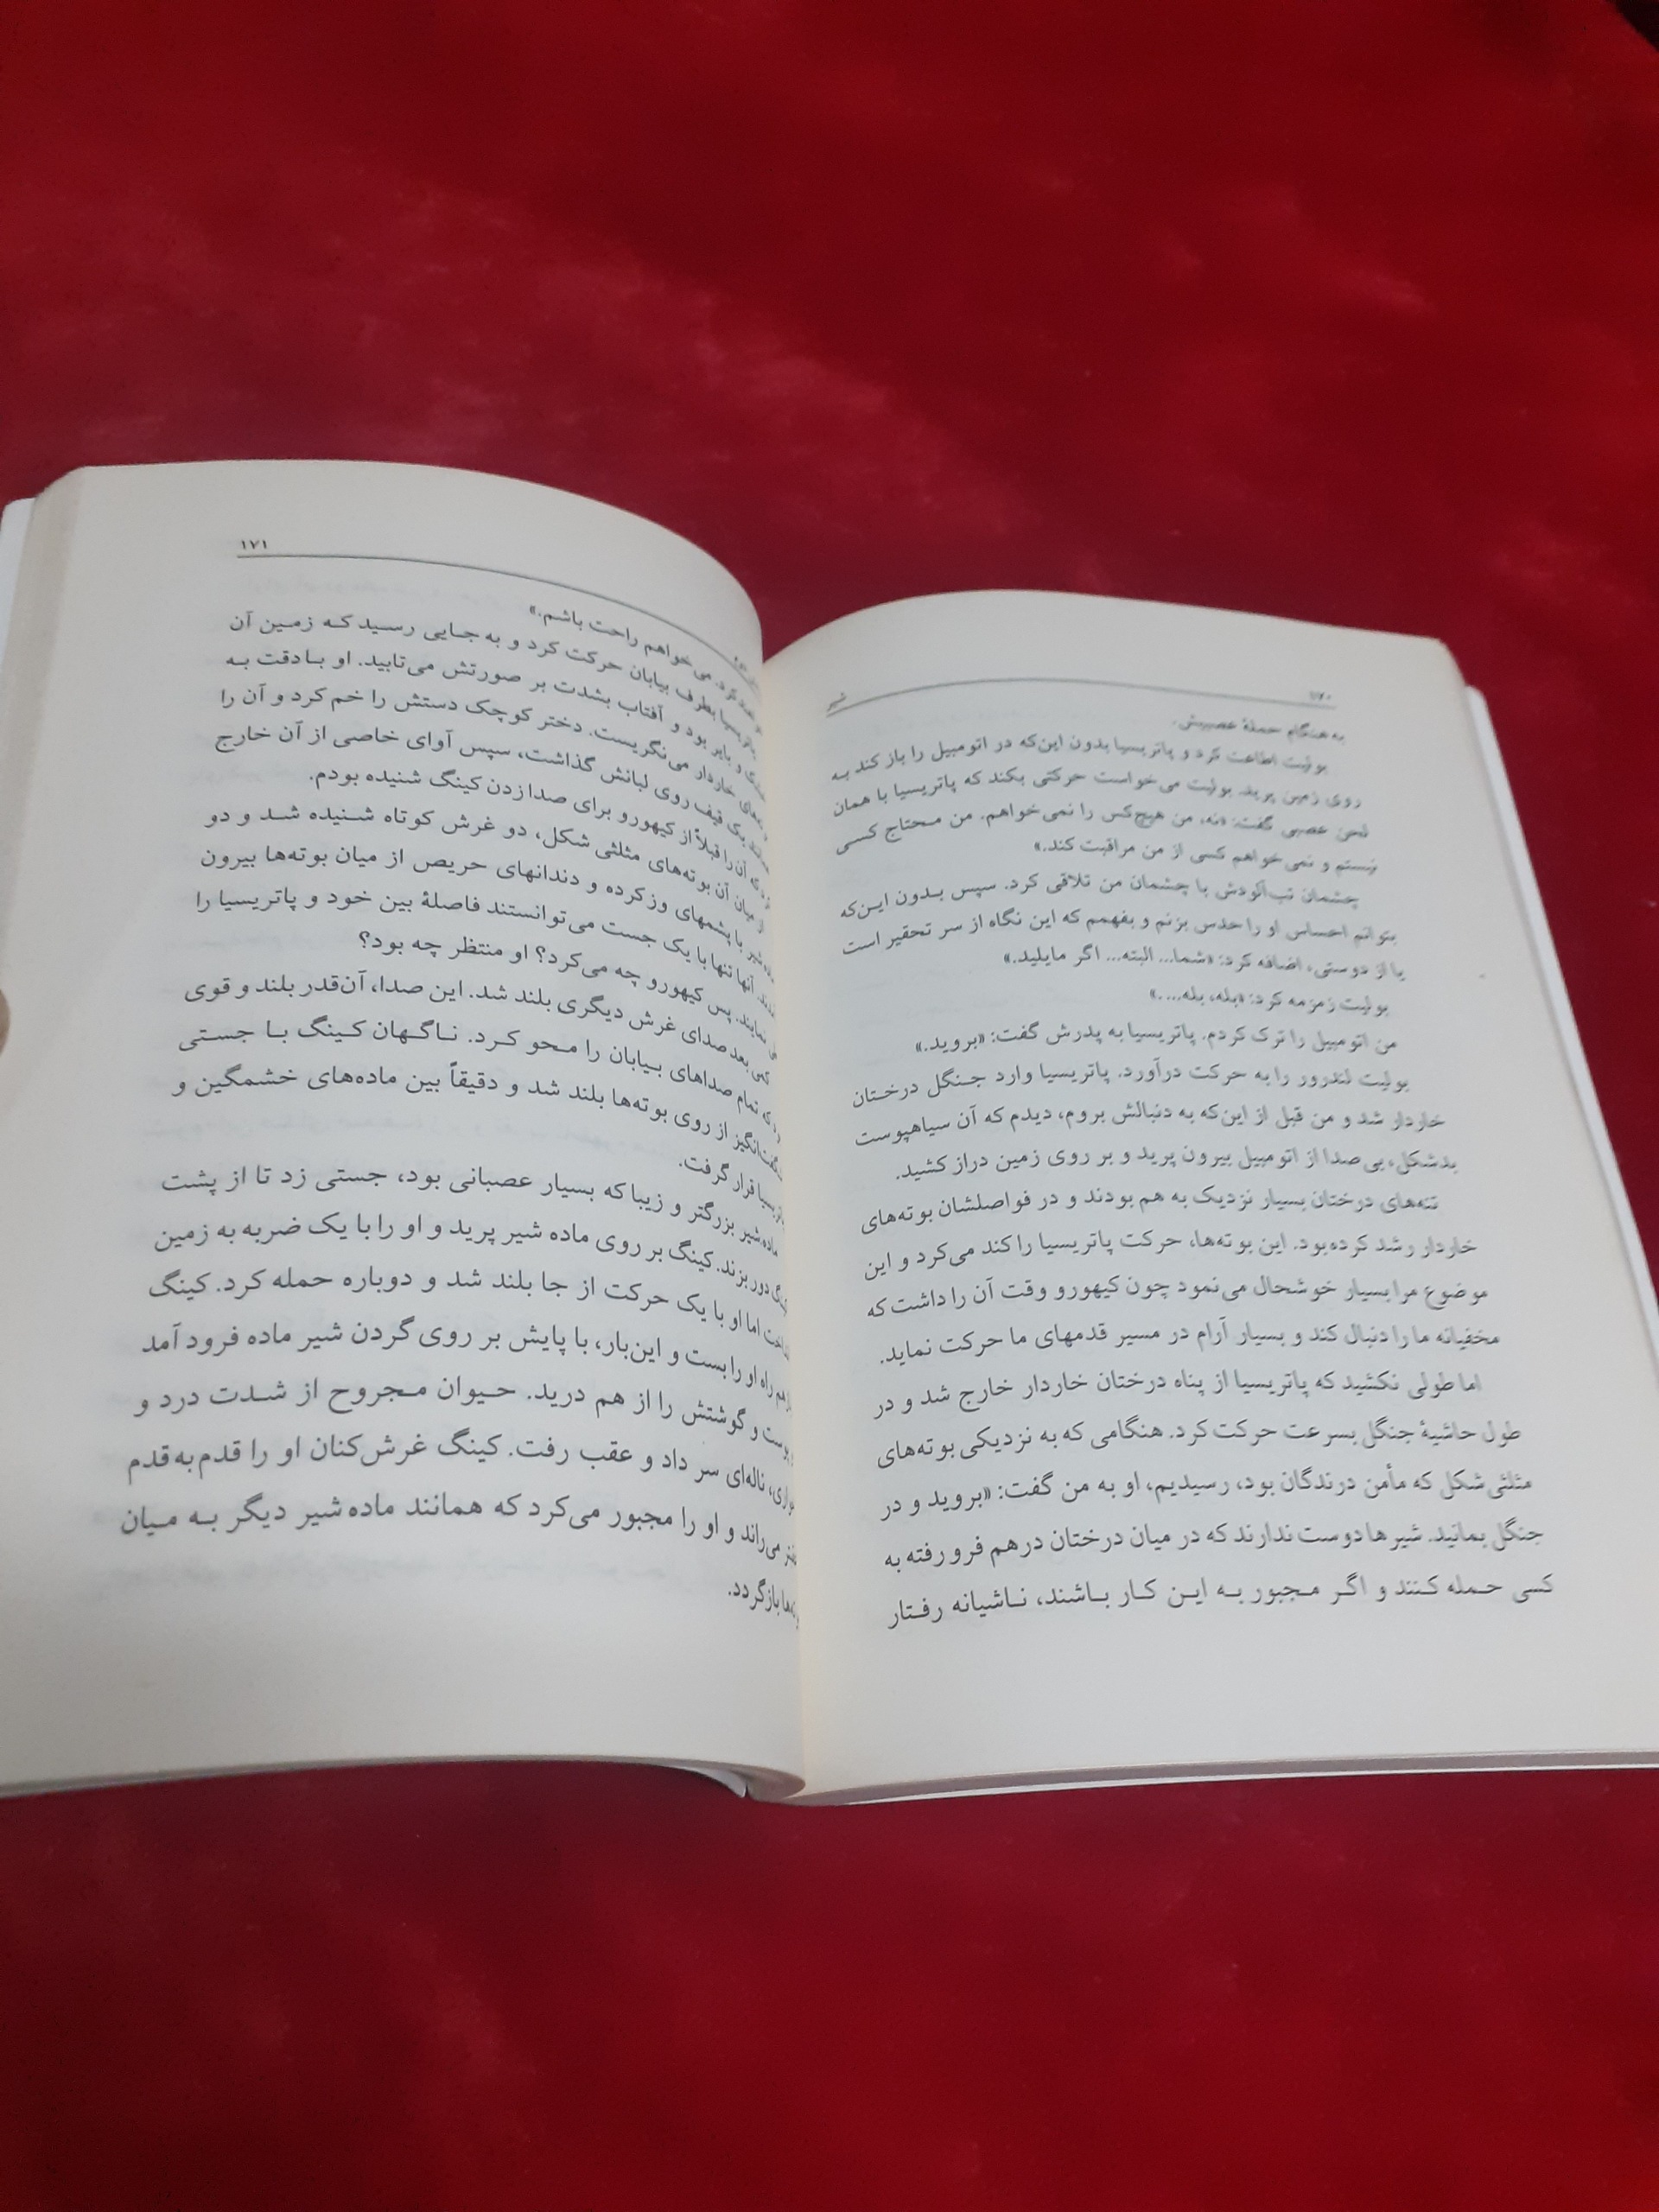 ۱۷۰
شیر
به هنگام حملهٔ عصبیش.
بولیت اطاعت کرد و پاتریسیا بدون این‌که در اتومبیل را باز کند به
روی زمین پرید. بولیت می‌خواست حرکتی بکند که پاتریسیا با همان
لحن عصبی گفت: «نه، من هیچ‌کس را نمی‌خواهم. من محتاج کسی
نیستم و نمی‌خواهم کسی از من مراقبت کند.»
چشمان تب‌آلودش با چشمان من تلاقی کرد. سپس بدون این‌که
بتوانم احساس او را حدس بزنم و بفهمم که این نگاه از سر تحقیر است
یا از دوستی، اضافه کرد: «شما... البته... اگر مایلید.»
بولیت زمزمه کرد: «بله، بله....»
من اتومبیل را ترک کردم. پاتریسیا به پدرش گفت: «بروید.»
بولیت لندرور را به حرکت درآورد. پاتریسیا وارد جنگل درختان
خاردار شد و من قبل از این‌که به دنبالش بروم، دیدم که آن سیاهپوست
بدشکل، بی‌صدا از اتومبیل بیرون پرید و بر روی زمین دراز کشید.
تنه‌های درختان بسیار نزدیک به هم بودند و در فواصلشان بوته‌های
خاردار رشد کرده بود. این بوته‌ها، حرکت پاتریسیا را کند می‌کرد و این
موضوع مرا بسیار خوشحال می‌نمود چون کیهورو وقت آن را داشت که
مخفیانه ما را دنبال کند و بسیار آرام در مسیر قدمهای ما حرکت نماید.
اما طولی نکشید که پاتریسیا از پناه درختان خاردار خارج شد و در
طول حاشیهٔ جنگل بسرعت حرکت کرد. هنگامی که به نزدیکی بوته‌های
مثلثی شکل که مأمن درندگان بود، رسیدیم، او به من گفت: «بروید و در
جنگل بمانید. شیرها دوست ندارند که در میان درختان درهم فرو رفته به
کسی حمله کنند و اگر مجبور به این کار باشند، ناشیانه رفتار
۱۷۱
می‌خواهم راحت باشم.»
پاتریسیا بطرف بیابان حرکت کرد و به جایی رسید که زمین آن
و بایر بود و آفتاب بشدت بر صورتش می‌تابید. او با دقت به
خاردار می‌نگریست. دختر کوچک دستش را خم کرد و آن را
یک قیف روی لبانش گذاشت، سپس آوای خاصی از آن خارج
که آن را قبلاً از کیهورو برای صدا زدن کینگ شنیده بودم.
از میان آن بوته‌های مثلثی شکل، دو غرش کوتاه شنیده شد و دو
با پشمهای وز کرده و دندانهای حریص از میان بوته‌ها بیرون
آنها تنها با یک جست می‌توانستند فاصلهٔ بین خود و پاتریسیا را
نمایند. پس کیهورو چه می‌کرد؟ او منتظر چه بود؟
کمی بعد صدای غرش دیگری بلند شد. این صدا، آن‌قدر بلند و قوی
که تمام صداهای بیابان را محو کرد. ناگهان کینگ با جستی
از روی بوته‌ها بلند شد و دقیقاً بین ماده‌های خشمگین و
قرار گرفت.
ماده‌شیر بزرگتر و زیبا که بسیار عصبانی بود، جستی زد تا از پشت
دور بزند. کینگ بر روی ماده شیر پرید و او را با یک ضربه به زمین
اما او با یک حرکت از جا بلند شد و دوباره حمله کرد. کینگ
هم راه او را بست و این‌بار، با پایش بر روی گردن شیر ماده فرود آمد
و گوشتش را از هم درید. حیوان مجروح از شدت درد و
ناله‌ای سر داد و عقب رفت. کینگ غرش‌کنان او را قدم به قدم
می‌راند و او را مجبور می‌کرد که همانند ماده شیر دیگر به میان
بازگردد.